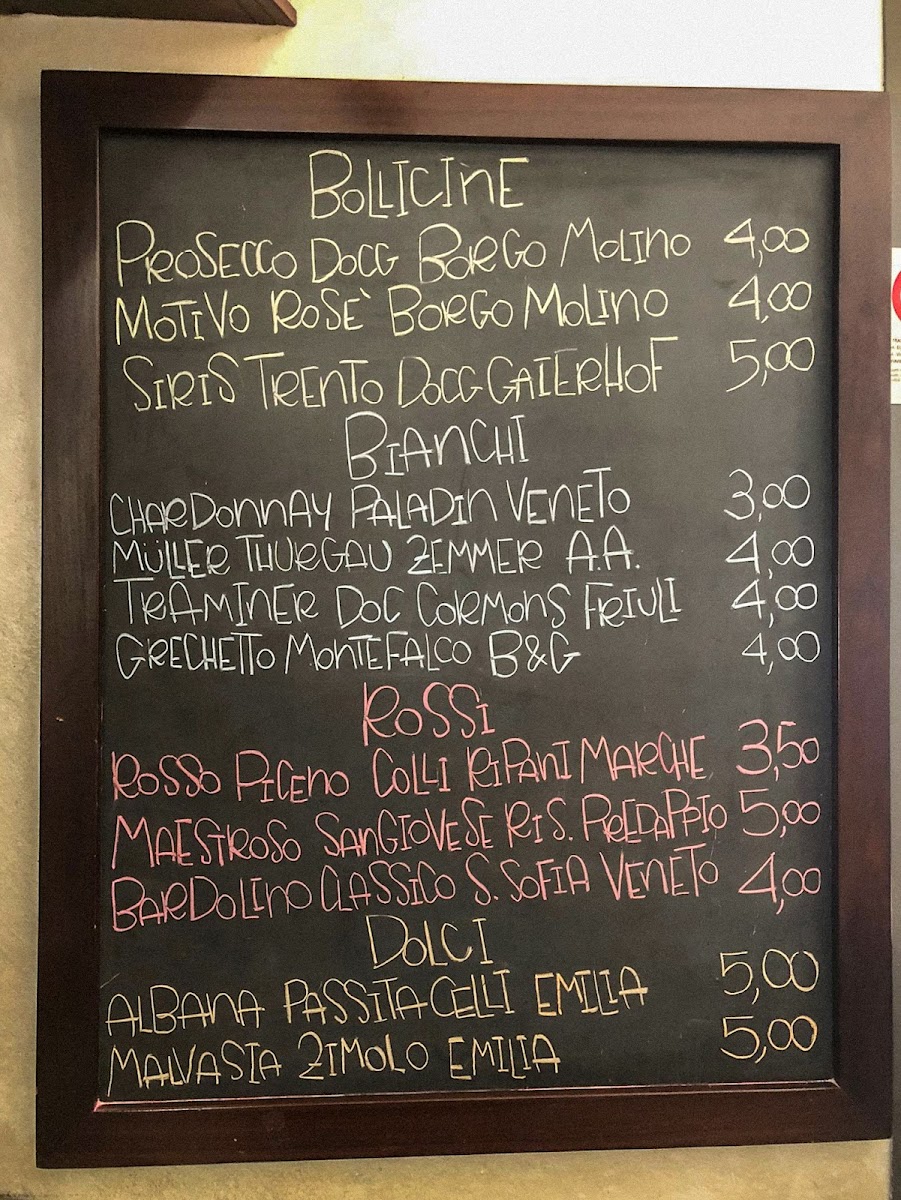 BOLLICINE
PROSECCO DOCG BORGO MOLINO 4,00
MOTIVO ROSÈ BORGO MOLINO 4,00
SIRIS TRENTO DOCG GAIERHOF 5,00
BIANCHI
CHARDONNAY PALADIN VENETO 3,00
MÜLLER THURGAU ZEMMER A.A. 4,00
TRAMINER DOC CORMONS FRIULI 4,00
GRECHETTO MONTEFALCO B&G 4,00
ROSSI
ROSSO PICENO COLLI RIPANI MARCHE 3,50
MAESTROSO SANGIOVESE RIS. PREDAPPIO 5,00
BARDOLINO CLASSICO S. SOFIA VENETO 4,00
DOLCI
ALBANA PASSITA CELLI EMILIA 5,00
MALVASIA ZIMOLO EMILIA 5,00